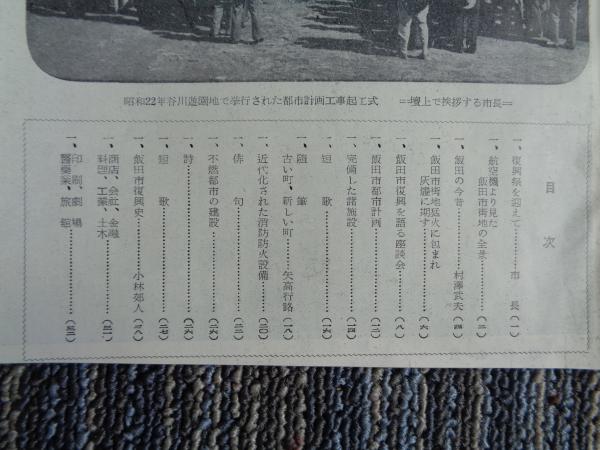 昭和22年谷川遊園地で挙行された都市計画工事起工式　==壇上で挨拶する市長==
目次
一、復興祭を迎えて………市長（一）
一、航空機より見た
飯田市街地の全景……（二）
一、飯田の今昔………村澤武夫（四）
一、飯田市街地猛火に包まれ
灰燼に期す………（六）
一、飯田市復興を語る座談会……（八）
一、飯田市都市計画………（一二）
一、完備した諸施設………（一四）
一、短歌………（一六）
一、随筆
古い町、新しい町……矢高行路（一八）
一、近代化された消防防火設備……（二〇）
一、俳句………（二二）
一、不燃都市の建設………（二六）
一、詩………（二六）
一、短歌………（二七）
一、飯田市復興史………小林郊人（二八）
一、商店、会社、金融
料理、工業、土木………（五一）
一、印刷、劇場
医薬業、旅館………（五二）